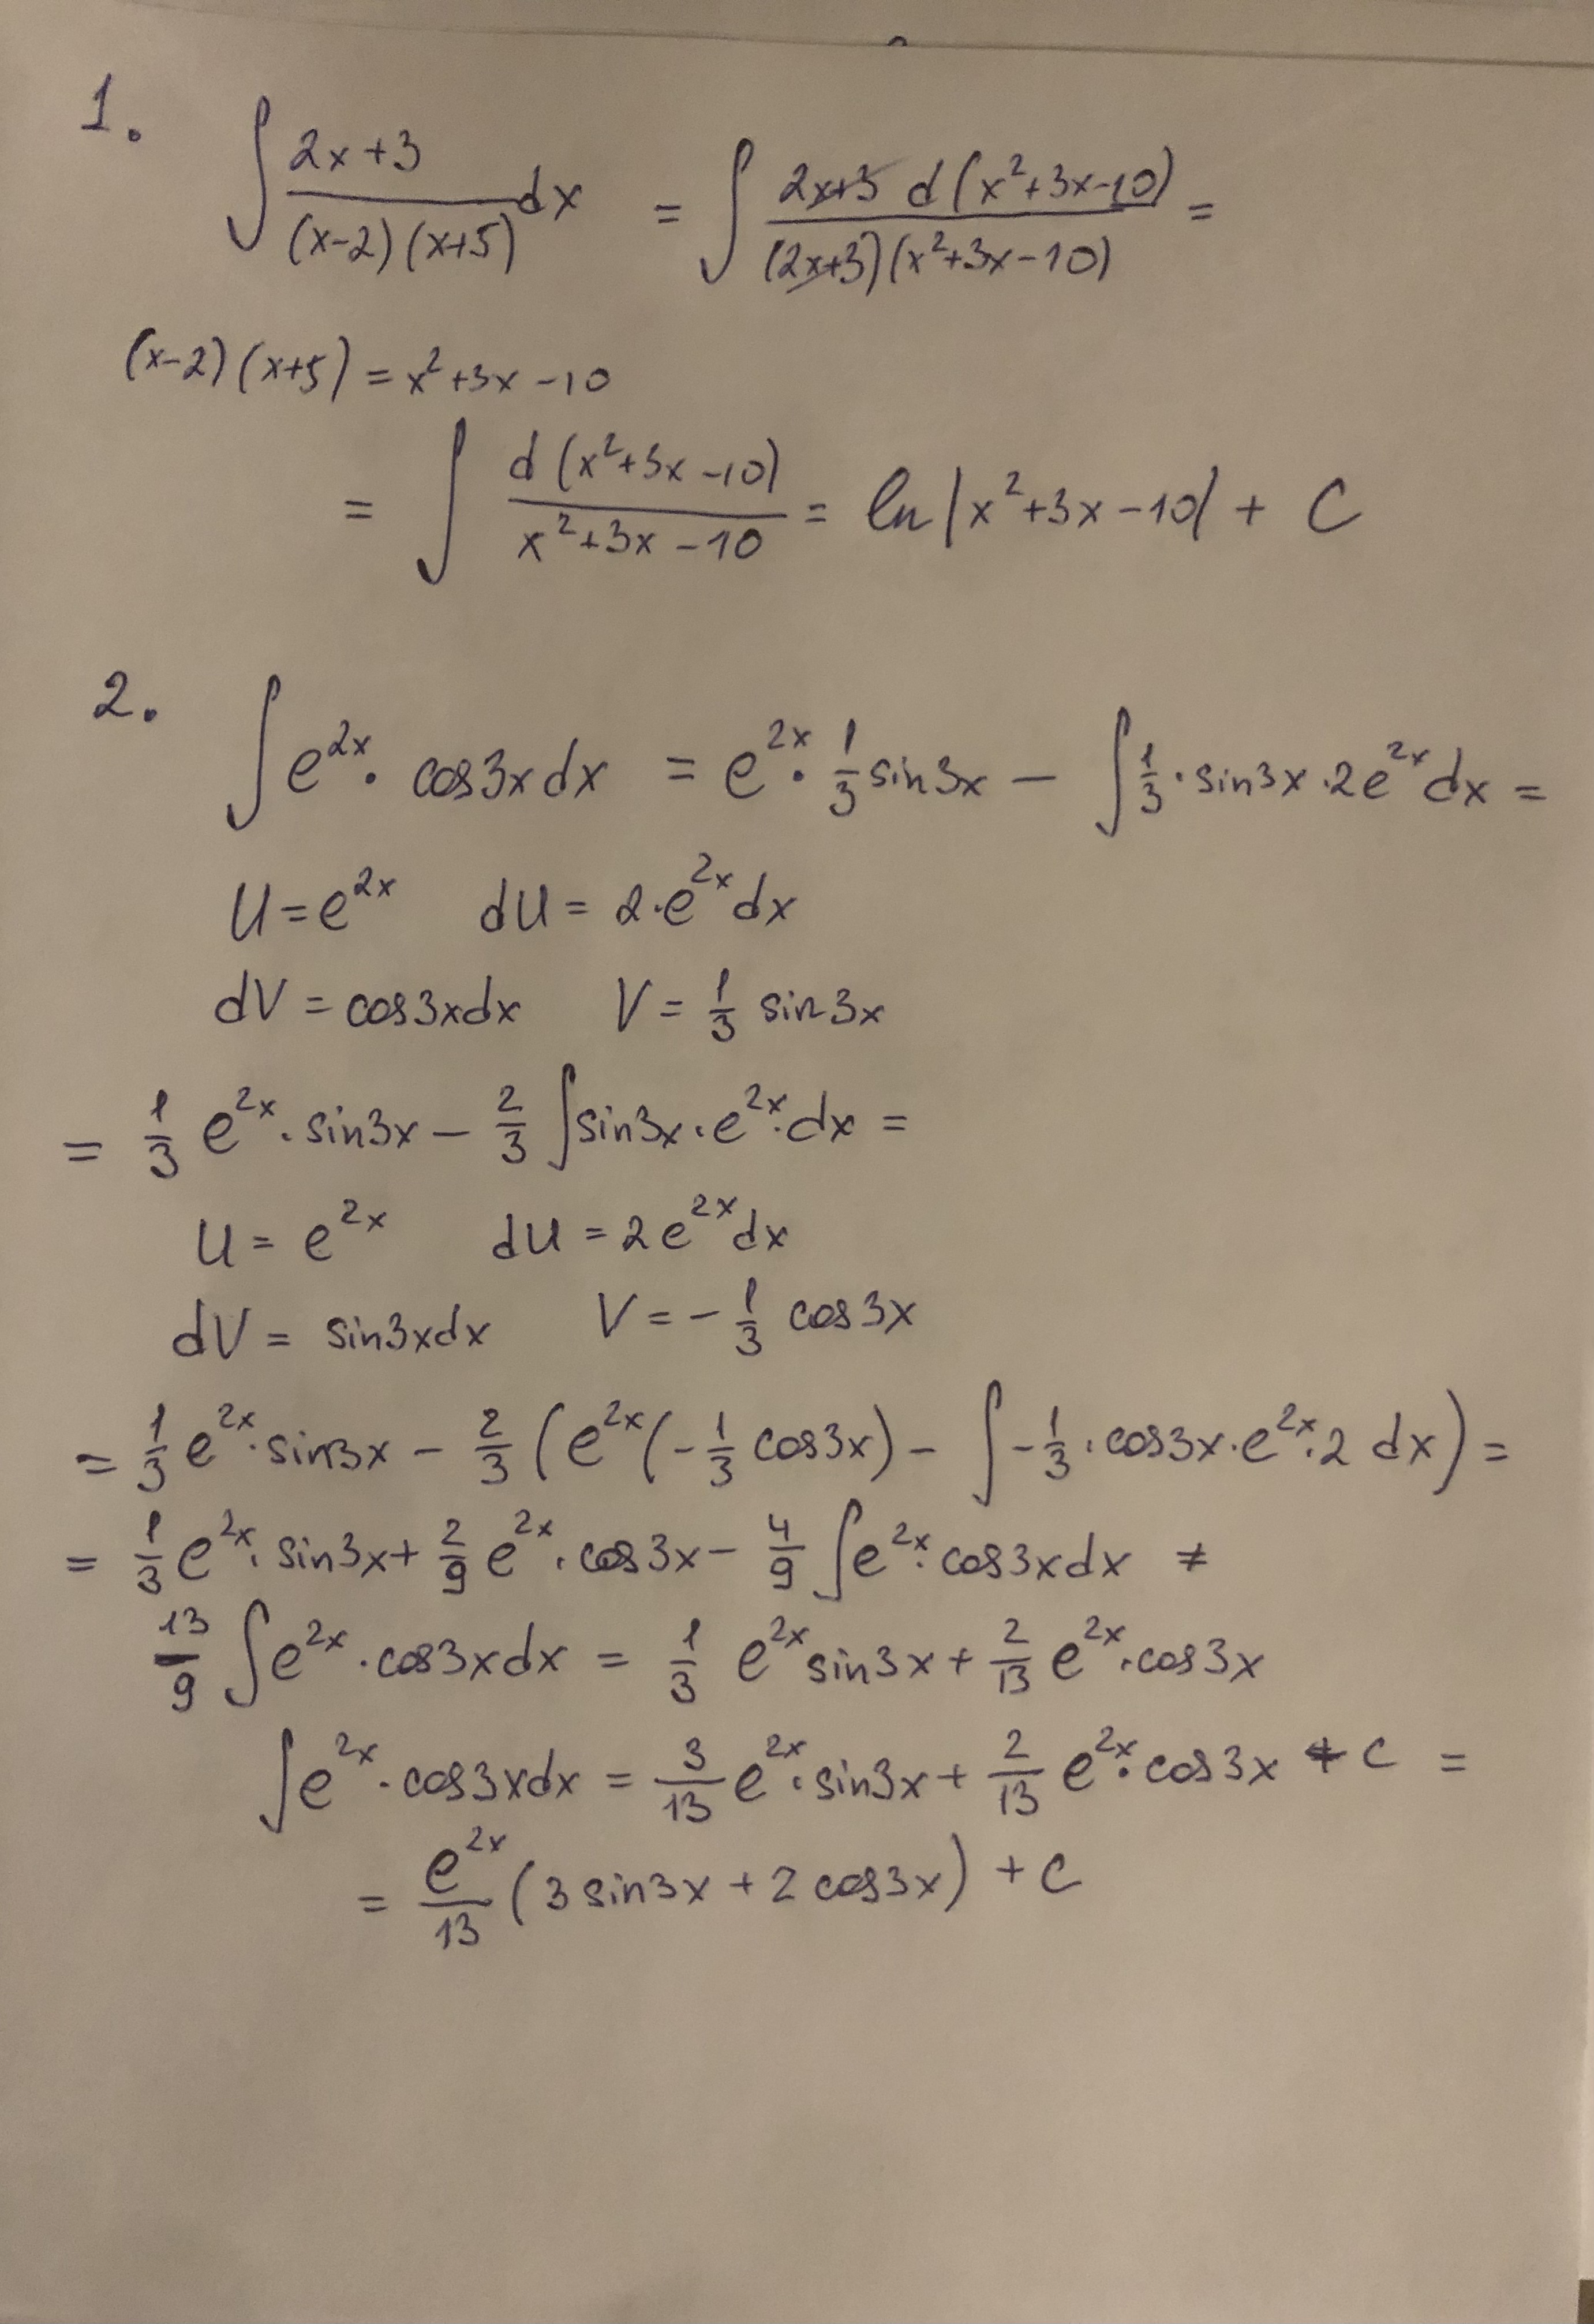 1. ∫ (2x+3)/((x-2)(x+5)) dx = ∫ (2x+3 d(x²+3x-10))/((2x+3)(x²+3x-10)) =
(x-2)(x+5) = x²+3x-10
= ∫ d(x²+3x-10)/(x²+3x-10) = ln|x²+3x-10| + C
2. ∫ e^(2x) · cos3x dx = e^(2x) · 1/3 sin3x - ∫ 1/3 · sin3x · 2e^(2x) dx =
U = e^(2x) dU = 2·e^(2x) dx
dV = cos3x dx V = 1/3 sin3x
= 1/3 e^(2x) · sin3x - 2/3 ∫ sin3x · e^(2x) · dx =
U = e^(2x) dU = 2e^(2x) dx
dV = sin3x dx V = - 1/3 cos3x
= 1/3 e^(2x) · sin3x - 2/3 (e^(2x) (- 1/3 cos3x) - ∫ - 1/3 · cos3x · e^(2x) · 2 dx) =
= 1/3 e^(2x) · sin3x + 2/9 e^(2x) · cos3x - 4/9 ∫ e^(2x) · cos3x dx ≠
13/9 ∫ e^(2x) · cos3x dx = 1/3 e^(2x) sin3x + 2/13 e^(2x) · cos3x
∫ e^(2x) · cos3x dx = 3/13 e^(2x) · sin3x + 2/13 e^(2x) · cos3x + C =
= e^(2x)/13 (3 sin3x + 2 cos3x) + C